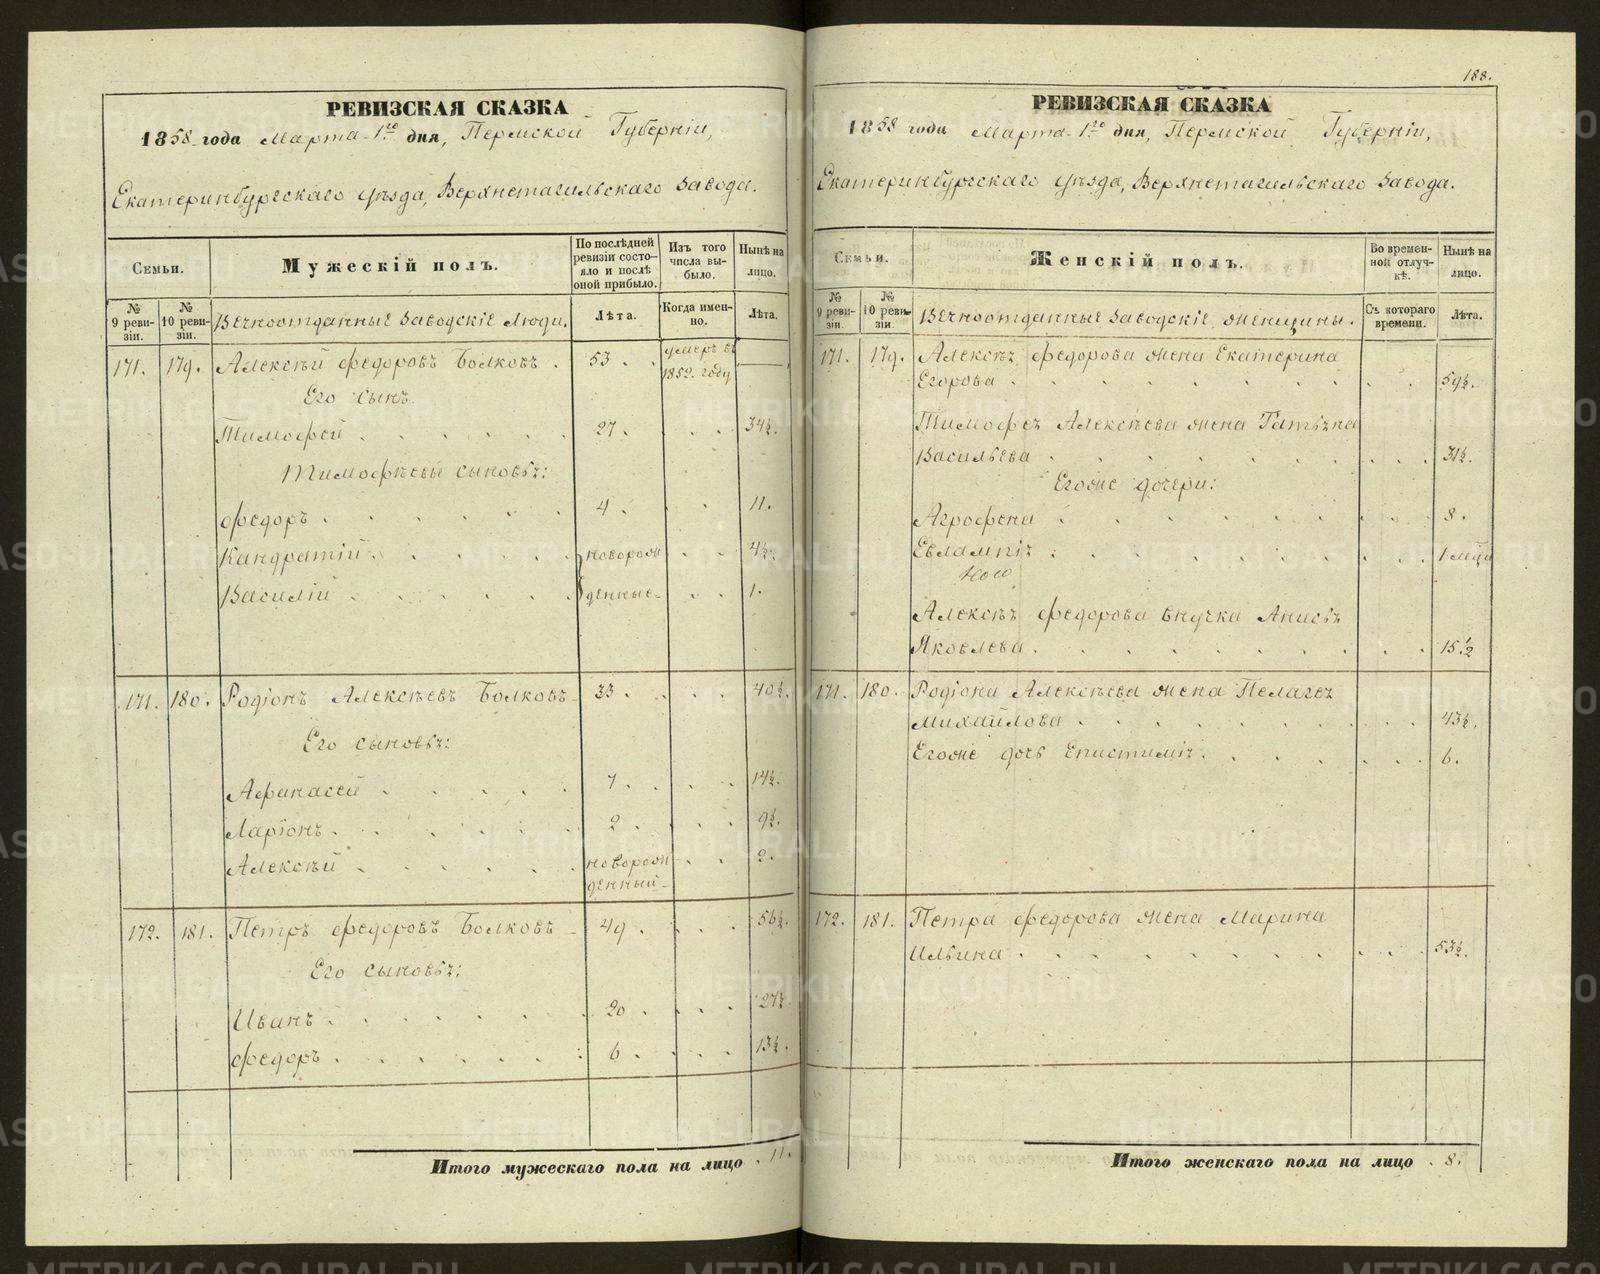 РЕВИЗСКАЯ СКАЗКА
1858 года Марта 1го дня, Пермской Губерніи,
Екатеринбургскаго уѣзда, Верхнетагильскаго завода.
Семьи.
Мужескій полъ.
По послѣдней ревизіи состояло и послѣ оной прибыло.
Изъ того числа выбыло.
Нынѣ на лицо.
№ 9 ревизіи.
№ 10 ревизіи.
Вечноотданные заводскіе люди.
Лѣта.
Когда именно.
Лѣта.
171. 179. Алексѣй Федоровъ Волковъ. 53. умеръ въ 1852. году
Его сынъ
Тимофей 27. 34½.
Тимофѣевы сыновья:
Федоръ 4. 11.
Кандратій новорож 4½.
Василій денные 1.
171. 180. Родіонъ Алексѣевъ Волковъ 33. 40½.
Его сыновья:
Афанасей 7. 14½.
Ларіонъ 2. 9½.
Алексѣй новорож 2.
денный
172. 181. Петръ Федоровъ Волковъ 49. 56½.
Его сыновья:
Иванъ 20. 27½.
Федоръ 6. 13½.
Итого мужескаго пола на лицо 11.
188.
РЕВИЗСКАЯ СКАЗКА
1858 года Марта 1го дня, Пермской Губерніи,
Екатеринбургскаго уѣзда, Верхнетагильскаго завода.
Семьи.
Женскій полъ.
Во временной отлучкѣ.
Нынѣ на лицо.
№ 9 ревизіи.
№ 10 ревизіи.
Вечноотданные заводскіе женщины.
Съ котораго времени.
Лѣта.
171. 179. Алексѣя Федорова жена Екатерина
Егорова 59½.
Тимофея Алексѣева жена Татьяна
Васильева 31½.
Егоже дочери:
Агрофена 8.
Евлампія 1 мѣся
Алексѣя Федорова внучка Анисья
Яковлева 15½
171. 180. Родіона Алексѣева жена Пелагея
Михайлова 43½.
Егоже дочь Епистимія 6.
172. 181. Петра Федорова жена Марина
Ильина 53½.
Итого женскаго пола на лицо 8.
METRIKI.GASO-URAL.RU